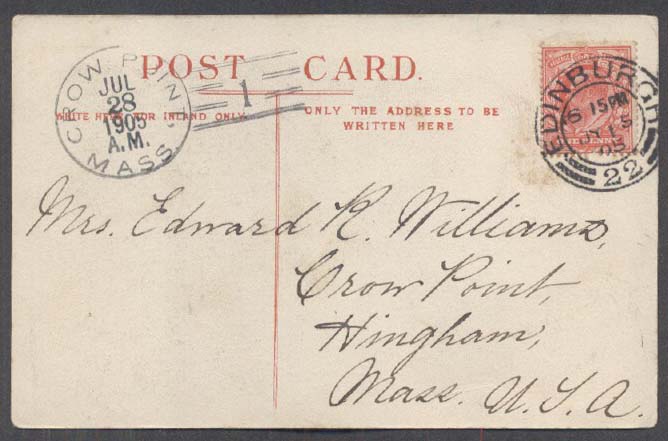 POST CARD.
WRITE HERE FOR INLAND ONLY.
ONLY THE ADDRESS TO BE
WRITTEN HERE
CROW POINT,
JUL
28
1905
A.M.
MASS.
1
EDINBURGH
6 15 PM
05
22
ONE PENNY
Mrs. Edward R. Williams,
Crow Point,
Hingham,
Mass. U.S.A.